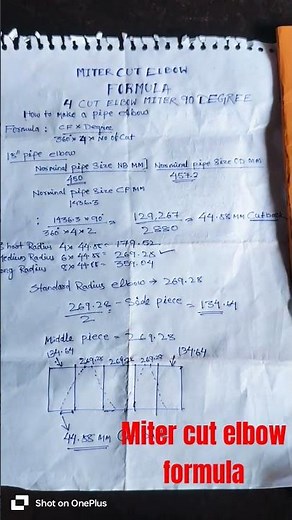 MITER CUT ELBOW
FORMULA
4 CUT ELBOW MITER 90 DEGREE
How to make a pipe elbow
Formula : CF × Degree
360° × 4 × No of Cut
18" pipe elbow
Nominal pipe Size NB MM | Nominal pipe Size OD MM
450 457.2
Nominal pipe Size CF MM
1436.3
: 1436.3 × 90° = 129,267 = 44.88 MM Cut back
360° × 4 × 2 2880
Short Radius 4 × 44.88 = 179.52
Medium Radius 6 × 44.88 = 269.28 ✓
Long Radius 8 × 44.88 = 359.04
Standard Radius elbow → 269.28
269.28 - Side piece = 134.64
2
Middle piece = 269.28
134.64 269.28 269.28 269.28 134.64
44.88 MM
Miter cut elbow
formula
Shot on OnePlus